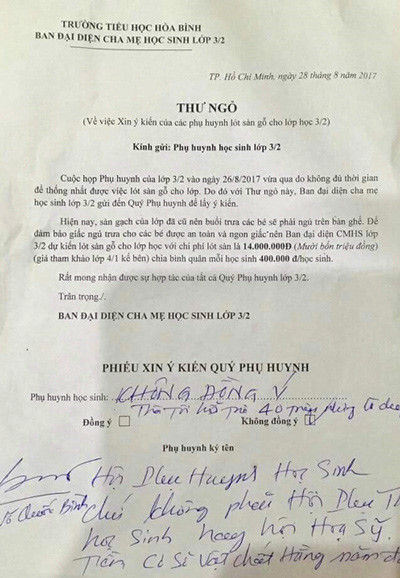 TRƯỜNG TIỂU HỌC HÒA BÌNH
BAN ĐẠI DIỆN CHA MẸ HỌC SINH LỚP 3/2
TP. Hồ Chí Minh, ngày 28 tháng 8 năm 2017
THƯ NGỎ
(Về việc Xin ý kiến của các phụ huynh lót sàn gỗ cho lớp học 3/2)
Kính gửi: Phụ huynh học sinh lớp 3/2
Cuộc họp Phụ huynh của lớp 3/2 vào ngày 26/8/2017 vừa qua do không đủ thời gian
để thống nhất được việc lót sàn gỗ cho lớp. Do đó với Thư ngỏ này, Ban đại diện cha mẹ
học sinh lớp 3/2 gửi đến Quý Phụ huynh để lấy ý kiến.
Hiện nay, sàn gạch của lớp đã cũ nên buổi trưa các bé sẽ phải ngủ trên bàn ghế. Để
đảm bảo giấc ngủ trưa cho các bé được an toàn và ngon giấc nên Ban đại diện CMHS lớp
3/2 dự kiến lót sàn gỗ cho lớp học với chi phí lót sàn là 14.000.000Đ (Mười bốn triệu đồng)
(giá tham khảo lớp 4/1 kế bên) chia bình quân mỗi học sinh 400.000 đ/học sinh.
Rất mong nhận được sự hợp tác của tất cả Quý Phụ huynh lớp 3/2.
Trân trọng./.
BAN ĐẠI DIỆN CHA MẸ HỌC SINH LỚP 3/2
PHIẾU XIN Ý KIẾN QUÝ PHỤ HUYNH
Phụ huynh học sinh: KHÔNG ĐỒNG Ý
Đồng ý Không đồng ý
Phụ huynh ký tên
Hội Phụ Huynh Học Sinh
Chứ không phải Hội Phụ
học Sinh hay hội Hoạ Sỹ.
Tiền Cơ Sở Vật chất Hằng năm